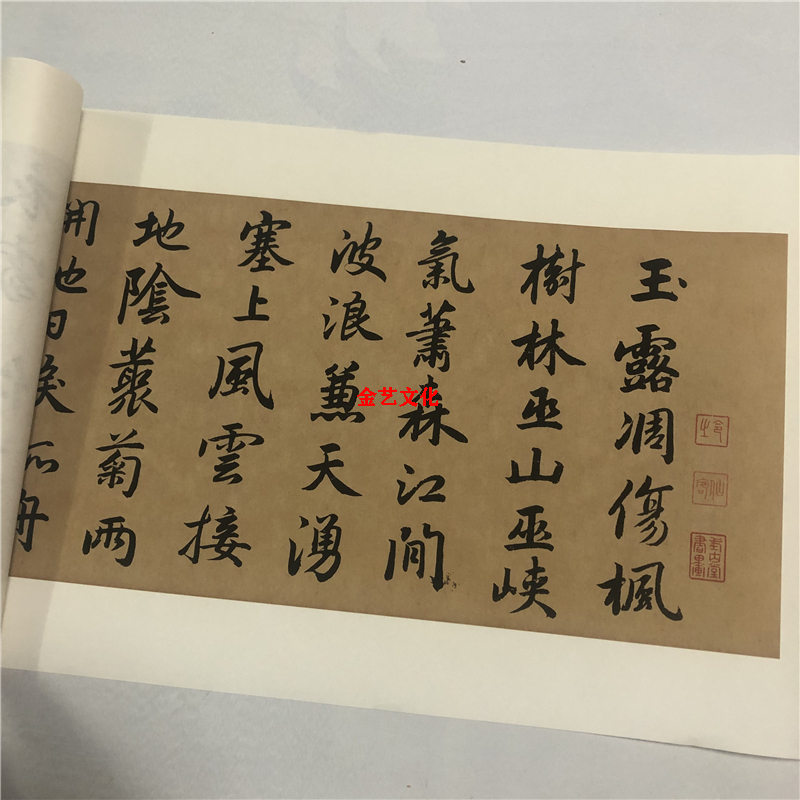 玉露凋傷楓
樹林巫山巫峽
氣蕭森江間
波浪兼天湧
塞上風雲接
地陰叢菊兩
開他日淚孤舟
金艺文化